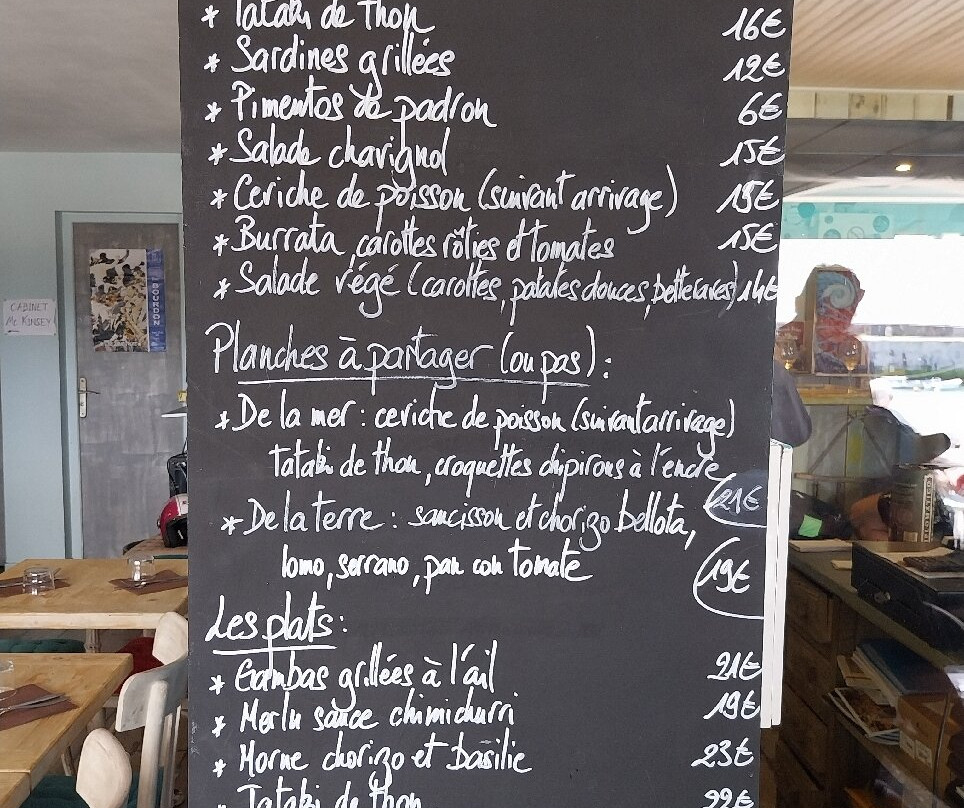 * Tataki de thon 16€
* Sardines grillées 12€
* Pimentos de padron 6€
* Salade chavignol 15€
* Ceviche de poisson (suivant arrivage) 15€
* Burrata, carottes rôties et tomates 15€
* Salade végé (carottes, patates douces, betteraves) 14€
Planches à partager (ou pas) :
* De la mer : ceviche de poisson (suivant arrivage)
tataki de thon, croquettes chipirons à l'encre
21€
* De la terre : saucisson et chorizo bellota,
lomo, serrano, pan con tomate 19€
Les plats :
* Gambas grillées à l'ail 21€
* Merlu sauce chimichurri 19€
* Morue chorizo et basilic 23€
* Tataki de thon 22€
CABINET
Mc KINSEY
BOURDON